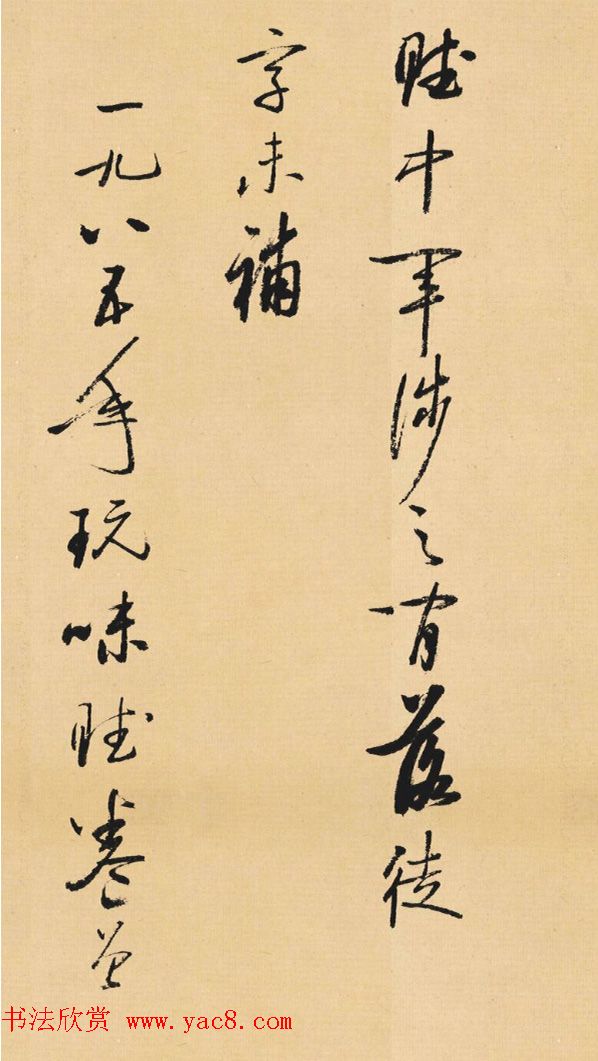 赋中军涉之间落徒
字未补
一九八五年玩味赋卷
书法欣赏 www.yac8.com